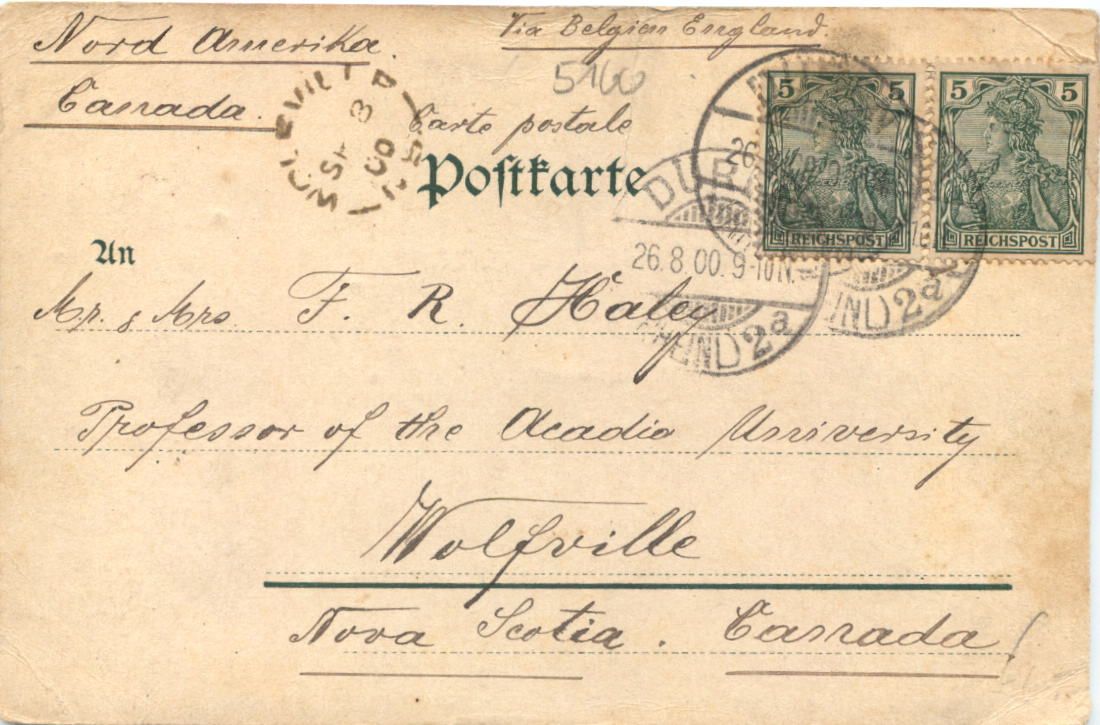 Nord Amerika.
Via Belgien England.
Canada.
5100
Carte postale
Postkarte
WOLFVILLE
SP 8
00
5
5
5
5
REICHSPOST
REICHSPOST
26.8.00. 9-10N.
2a
2a
An
Mr. & Mrs. F. R. Haley
Professor of the Acadia University
Wolfville
Nova Scotia. Canada!